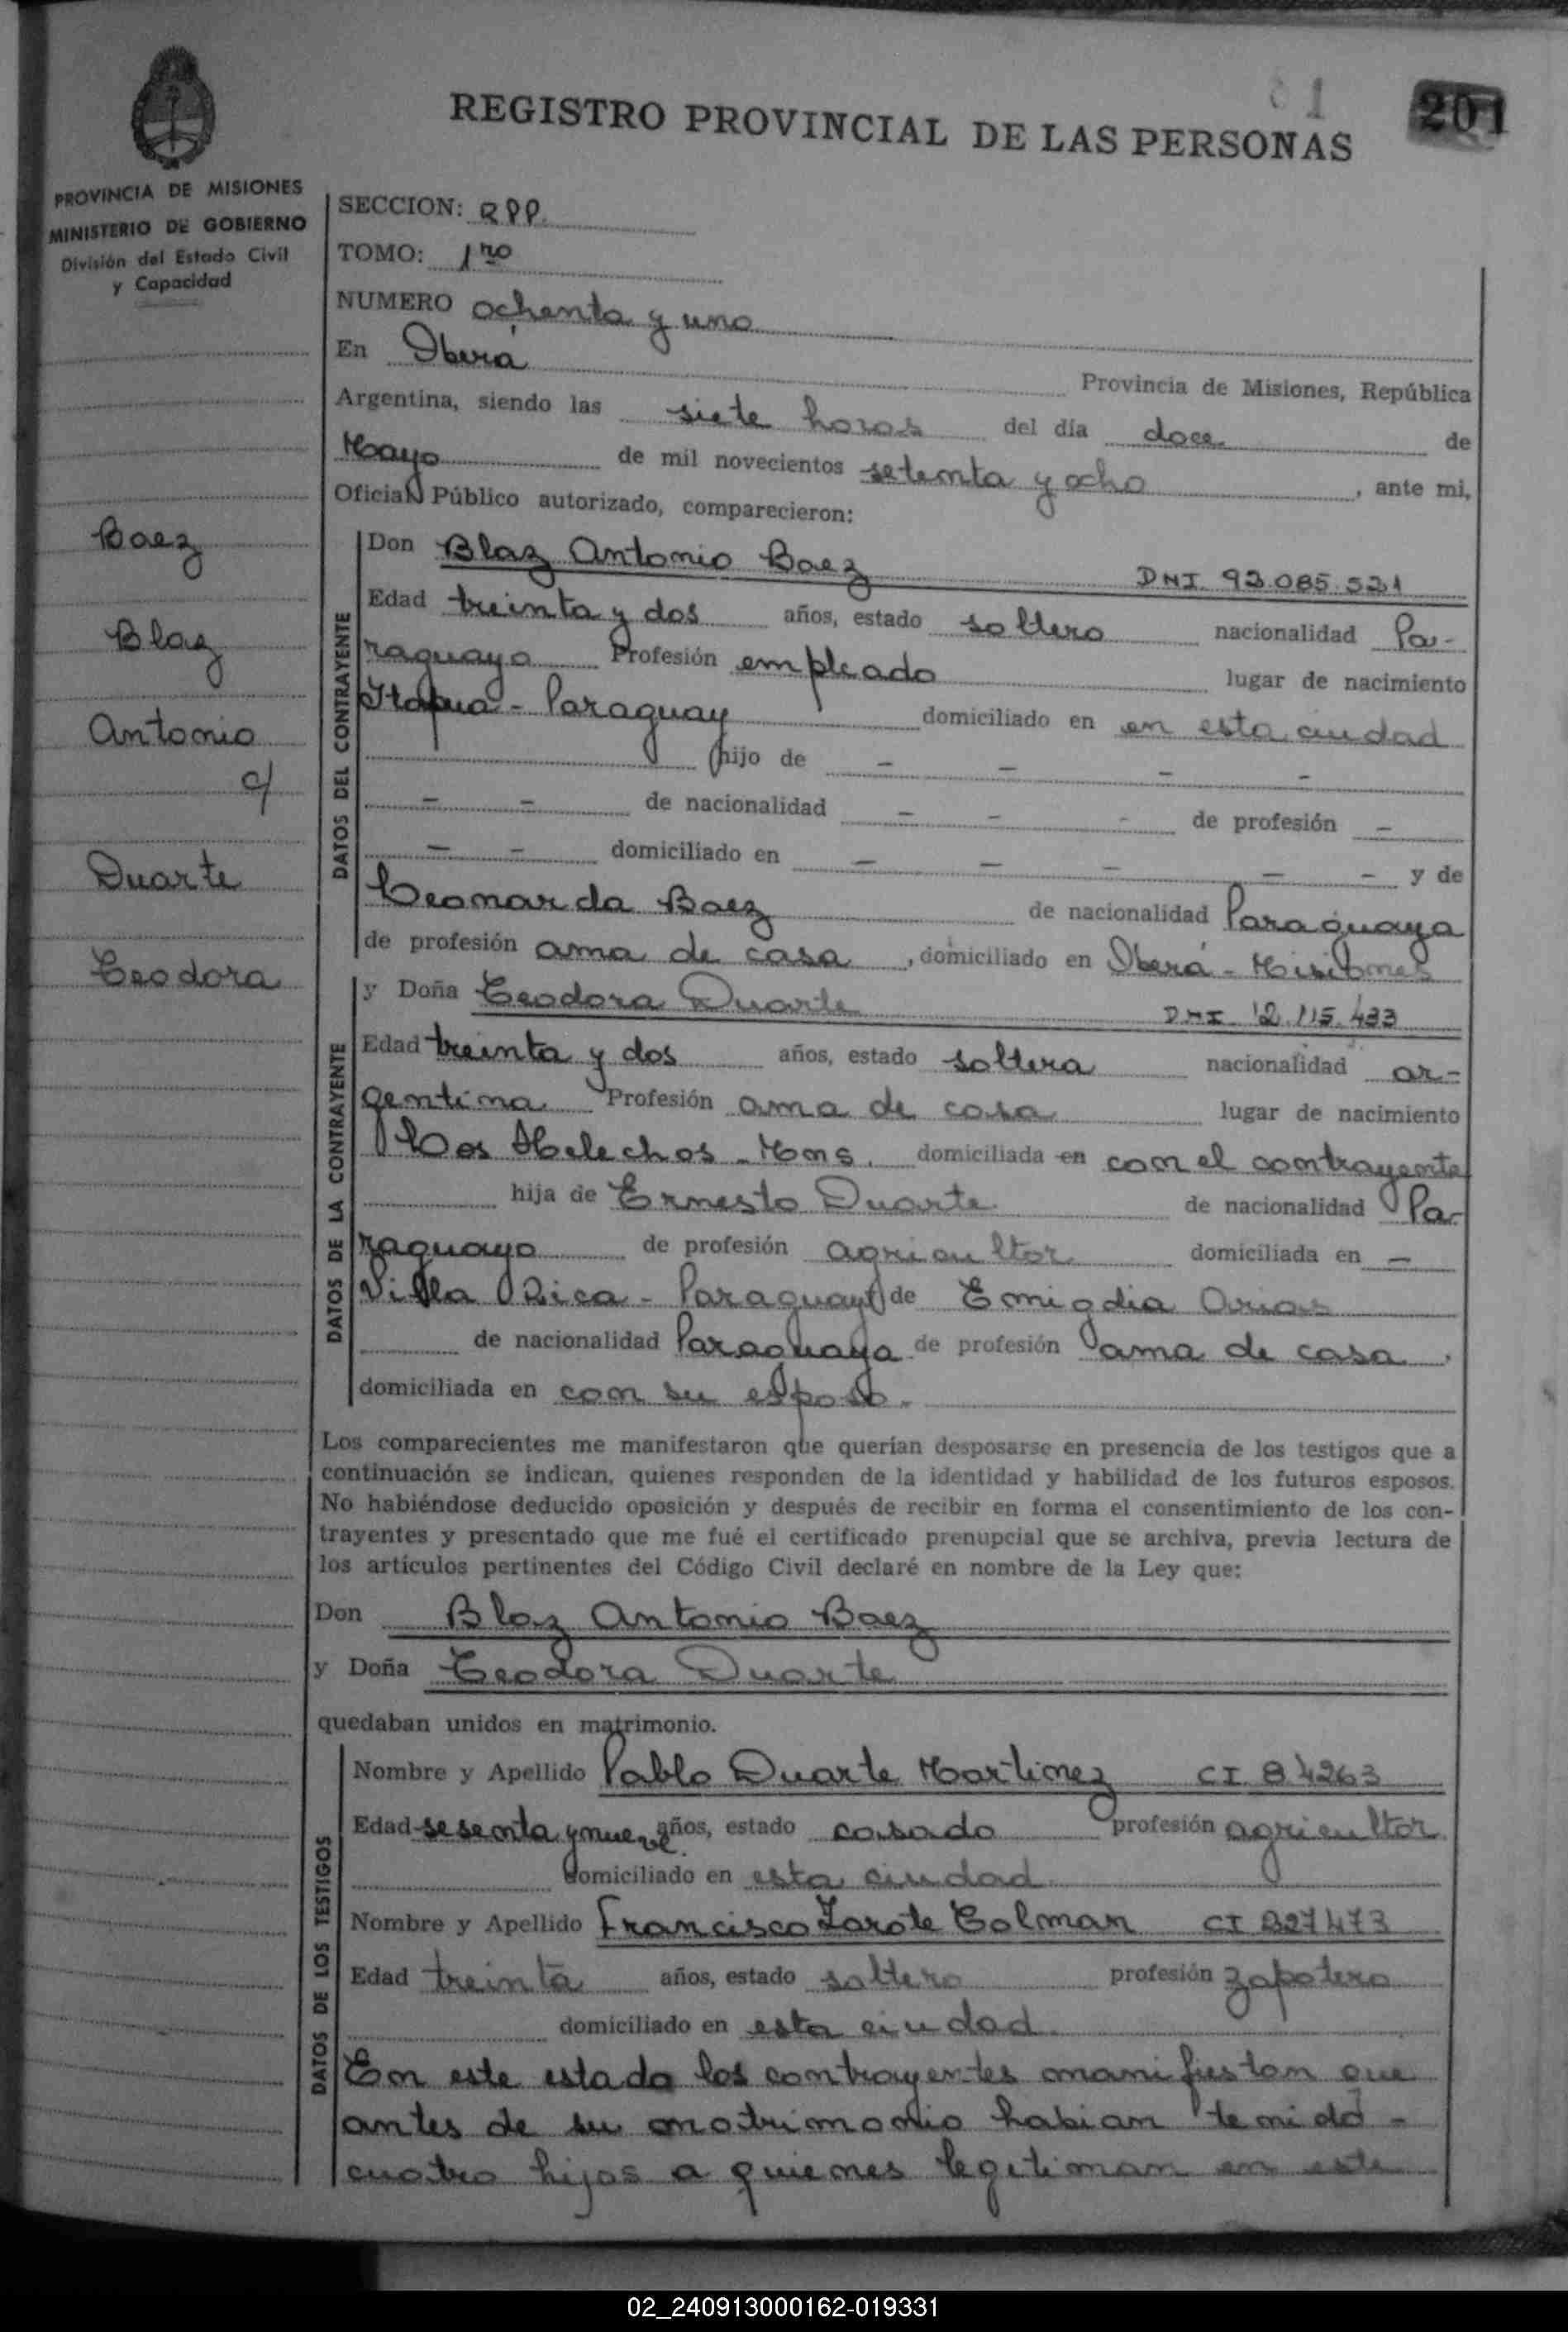 81 201
REGISTRO PROVINCIAL DE LAS PERSONAS
PROVINCIA DE MISIONES
MINISTERIO DE GOBIERNO
División del Estado Civil
y Capacidad
Baez
Blaz
Antonio
c/
Duarte
Teodora
SECCION: RPP.
TOMO: 1ro
NUMERO ochenta y uno
En Oberá Provincia de Misiones, República
Argentina, siendo las siete horas del día doce de
Mayo de mil novecientos setenta y ocho, ante mi,
Oficial Público autorizado, comparecieron:
DATOS DEL CONTRAYENTE
Don Blaz Antonio Baez DNI 93.085.531
Edad treinta y dos años, estado soltero nacionalidad Pa-
raguayo Profesión empleado lugar de nacimiento
Itapua - Paraguay domiciliado en en esta ciudad
hijo de - - - -
- - de nacionalidad - - - de profesión -
- - domiciliado en - - - - - y de
Leonarda Baez de nacionalidad Paraguaya
de profesión ama de casa, domiciliado en Oberá - Misiones
DATOS DE LA CONTRAYENTE
y Doña Teodora Duarte DNI 12.115.433
Edad treinta y dos años, estado soltera nacionalidad ar-
gentina Profesión ama de casa lugar de nacimiento
Los Helechos - Mnes. domiciliada en con el contrayente
hija de Ernesto Duarte de nacionalidad Pa-
raguayo de profesión agricultor domiciliada en -
Villa Rica - Paraguay y de Emigdia Arias
de nacionalidad Paraguaya de profesión ama de casa,
domiciliada en con su esposo.
Los comparecientes me manifestaron que querían desposarse en presencia de los testigos que a
continuación se indican, quienes responden de la identidad y habilidad de los futuros esposos.
No habiéndose deducido oposición y después de recibir en forma el consentimiento de los con-
trayentes y presentado que me fué el certificado prenupcial que se archiva, previa lectura de
los artículos pertinentes del Código Civil declaré en nombre de la Ley que:
Don Blaz Antonio Baez
y Doña Teodora Duarte
quedaban unidos en matrimonio.
DATOS DE LOS TESTIGOS
Nombre y Apellido Pablo Duarte Martinez CI 84263
Edad sesenta y nueve años, estado casado profesión agricultor
domiciliado en esta ciudad
Nombre y Apellido Francisco Zarate Colman CI 327473
Edad treinta años, estado soltero profesión zapatero
domiciliado en esta ciudad.
En este estado los contrayentes manifiestan que
antes de su matrimonio habian tenido -
cuatro hijos a quienes legitiman en este
02_240913000162-019331